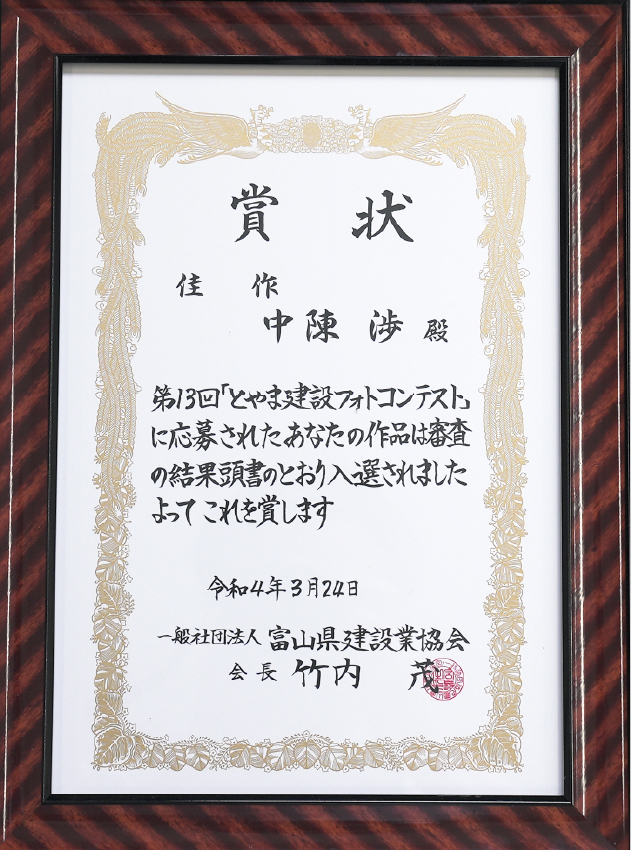 賞 状
佳 作
中陳 渉 殿
第13回「とやま建設フォトコンテスト」
に応募されたあなたの作品は審査
の結果頭書のとおり入選されました
よって これを賞します
令和4年3月24日
一般社団法人 富山県建設業協会
会長 竹内 茂